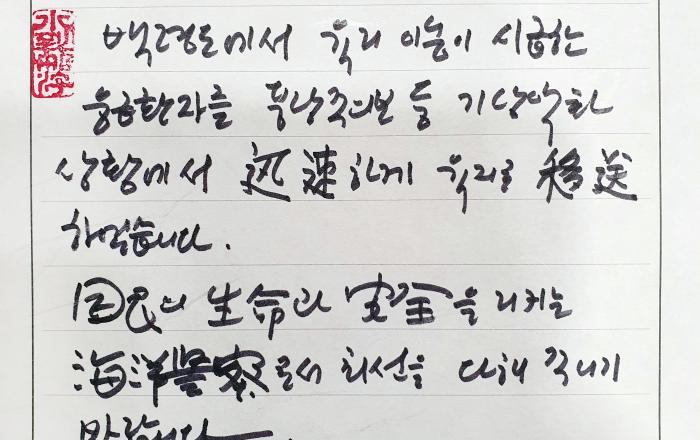 백령도에서 육지 이송이 시급한
응급환자를 풍랑주의보 등 기상악화
상황에서 迅速하게 육지로 移送
하였습니다.
国民의 生命과 安全을 지키는
海洋警察로서 최선을 다해 주시기
바랍니다.